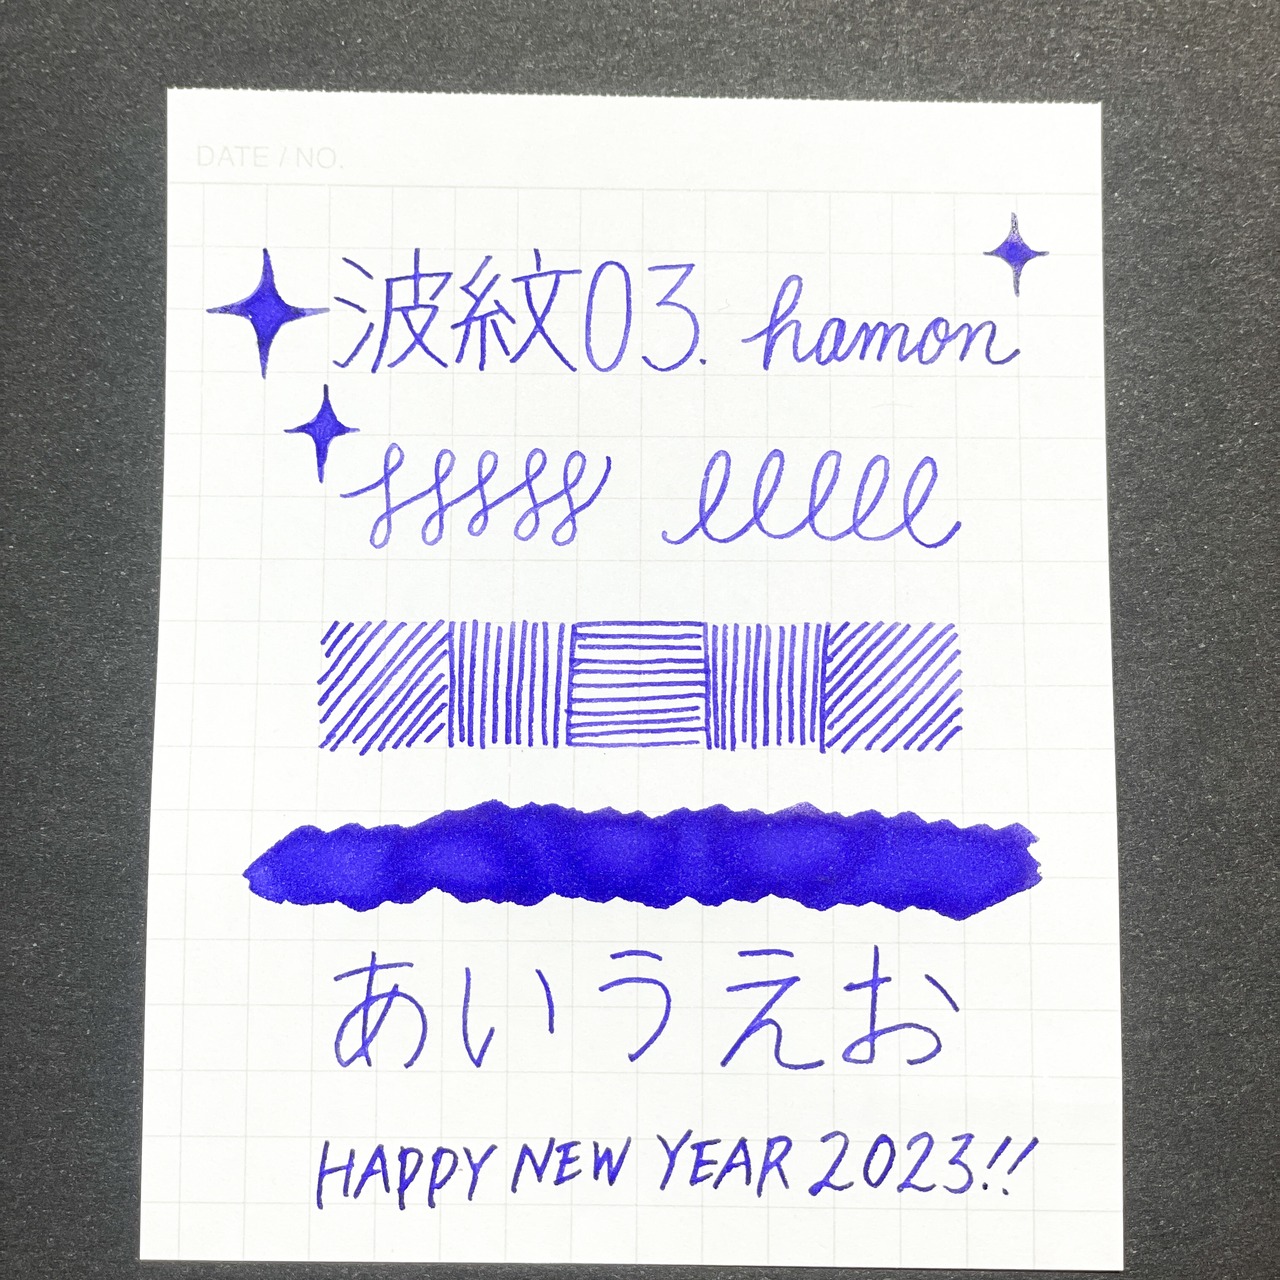 DATE / NO.
波紋03. hamon
lllll
あいうえお
HAPPY NEW YEAR 2023!!